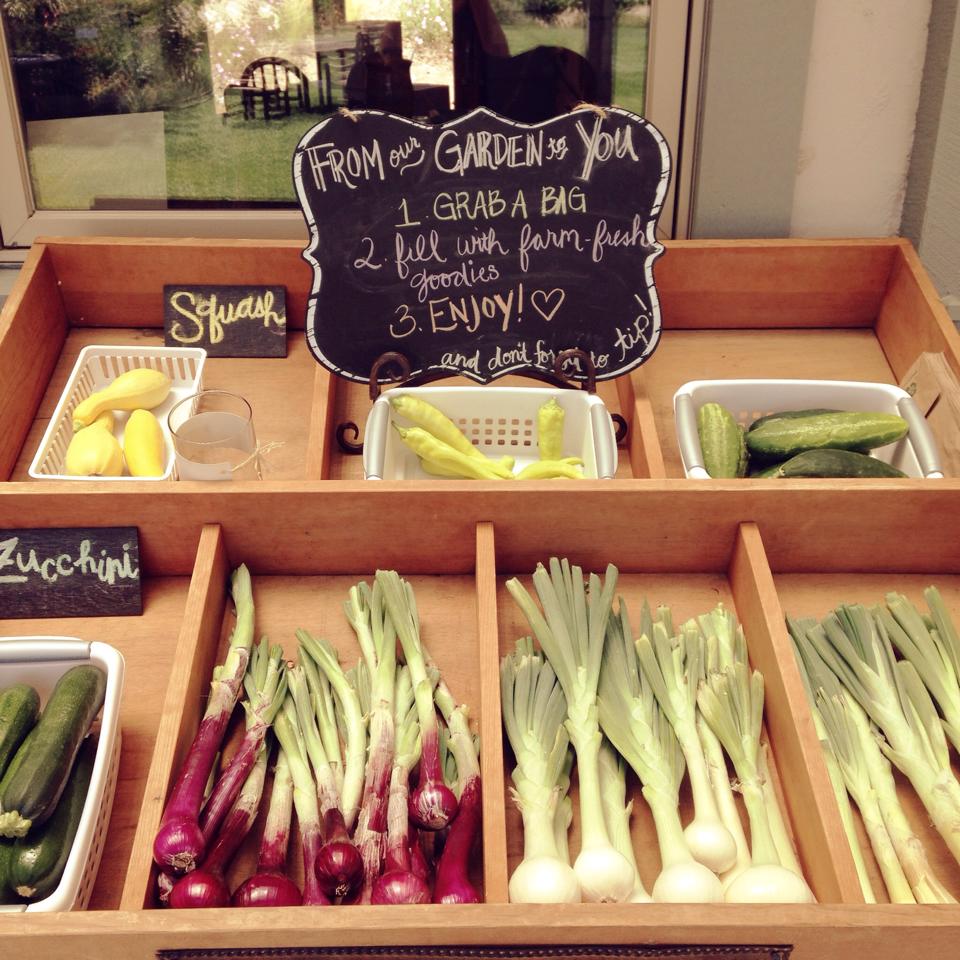 FROM our GARDEN to YOU
1. GRAB A BAG
2. fill with farm-fresh
goodies
3. ENJOY! ♡
and don't forget to tip!
Squash
Zucchini